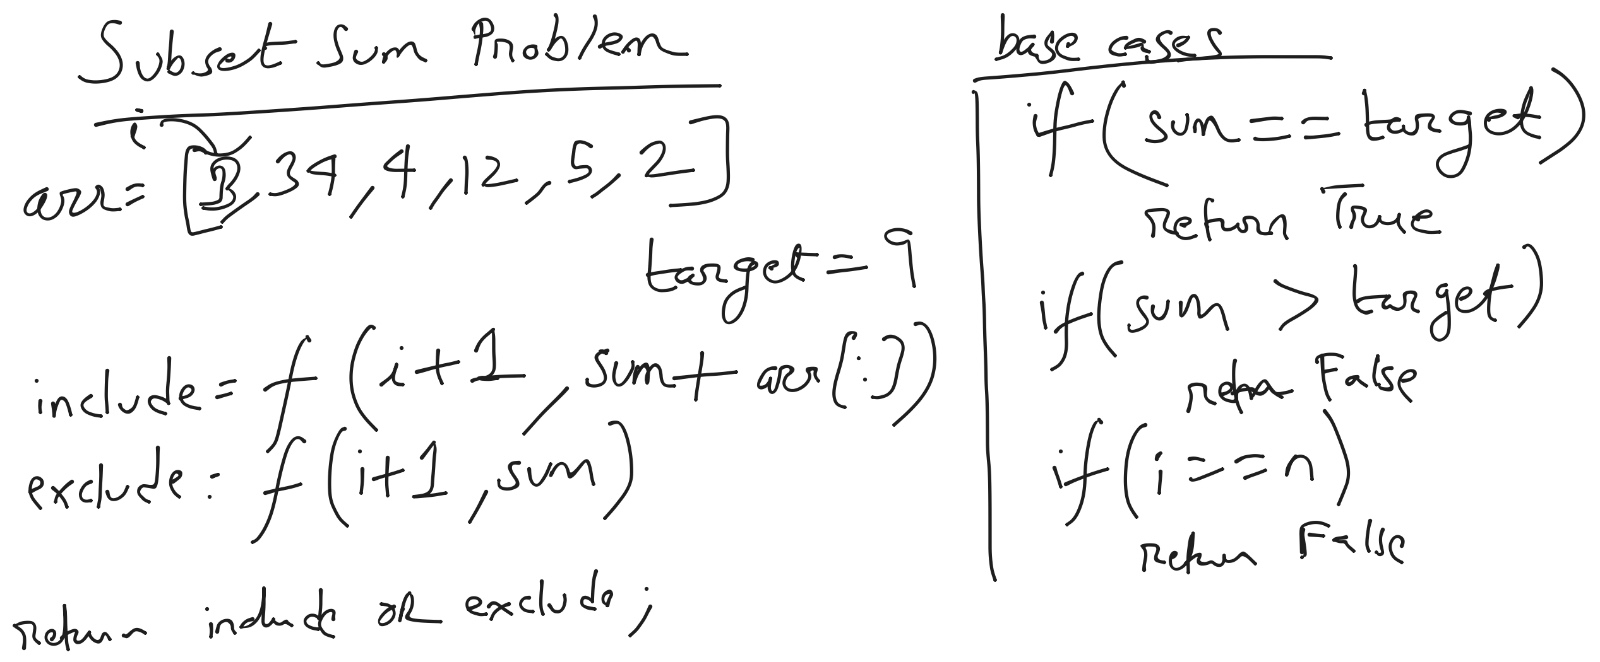 Subset Sum Problem
i
arr= [3, 34, 4, 12, 5, 2]
target = 9
include = f(i+1, sum + arr[i])
exclude = f(i+1, sum)
return include OR exclude;
base cases
if(sum == target)
return True
if(sum > target)
return False
if(i == n)
return False